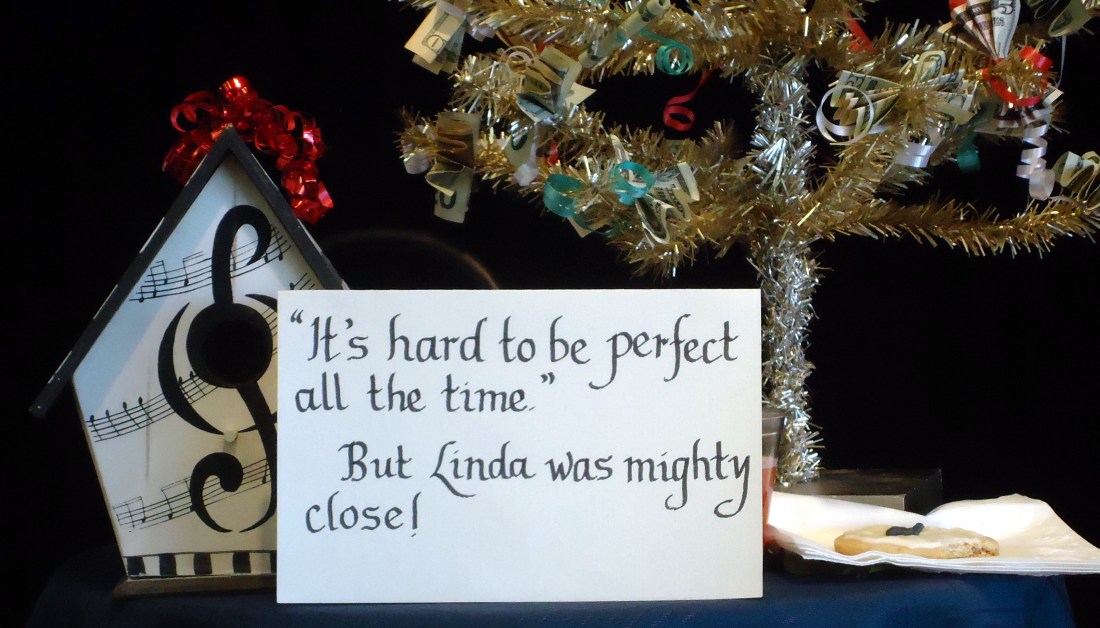 "It's hard to be perfect
all the time."
But Linda was mighty
close!